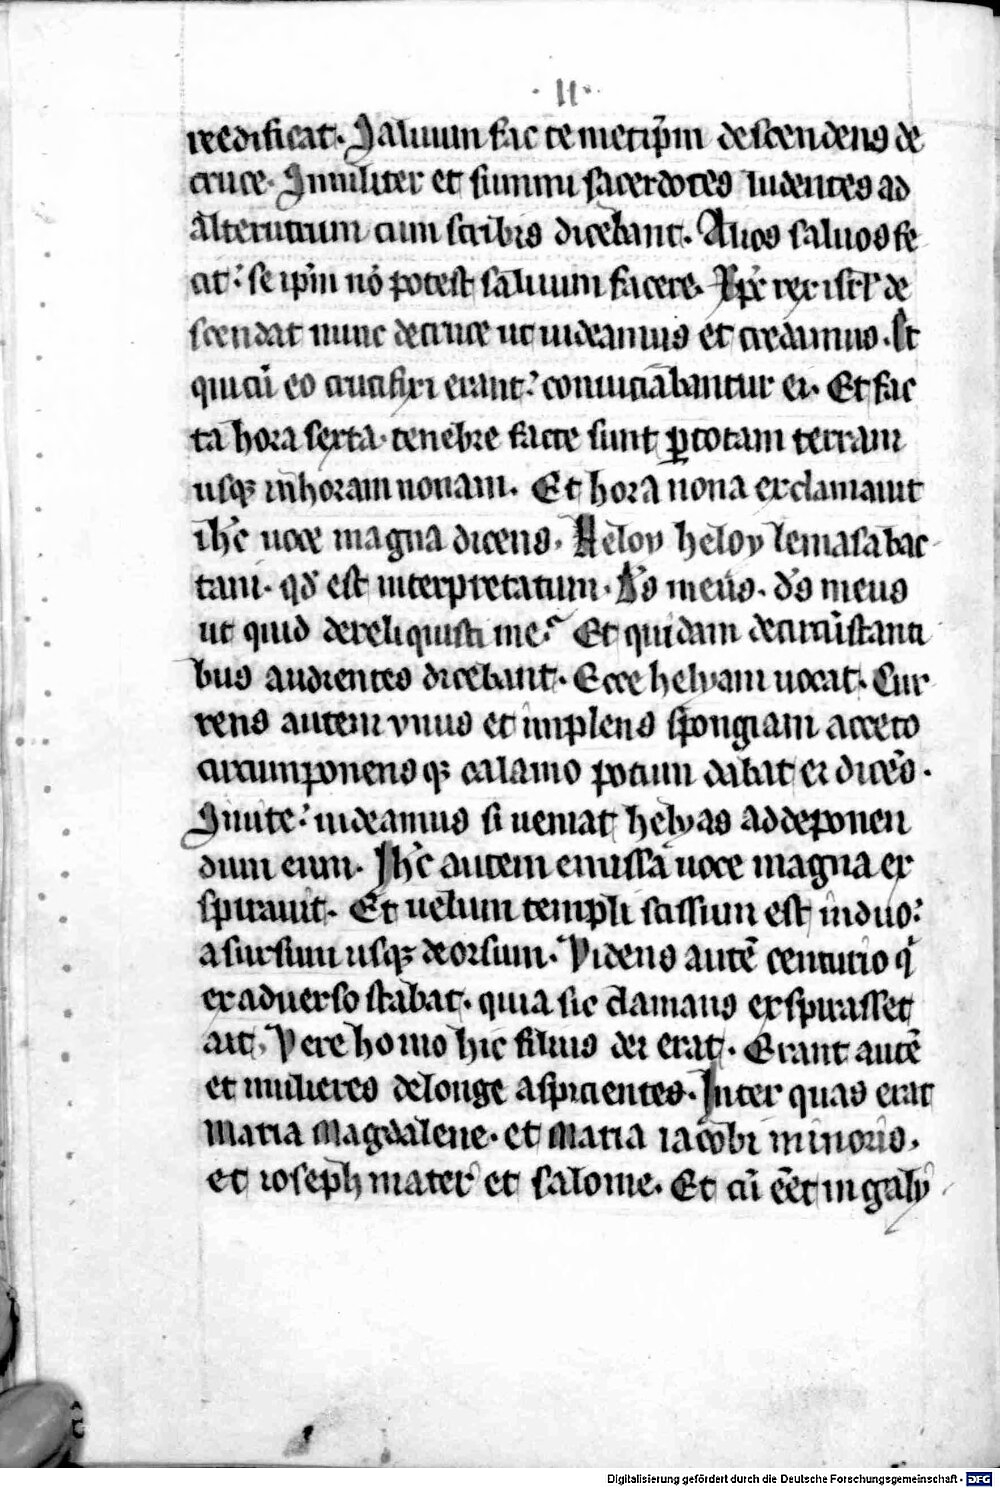 · II ·
reedificat. Saluum fac temetip̄m descendens de
cruce. Similiter et summi sacerdotes ludentes ad
alterutrum cum scribis dicebant. Alios saluos fe
cit: se ip̄m nō potest saluum facere. Xp̄c rex isrl̄ de
scendat nunc de cruce ut uideamus et credamus. Et
qui cū eo crucifixi erant: conuiciabantur ei. Et fac
ta hora sexta. tenebre facte sunt ꝑ totam terram
usqꝫ in horam nonam. Et hora nona exclamauit
ih̄c uoce magna dicens. Heloy heloy lema sabac
tani. qd̄ est interpretatum. Ds̄ meus. ds̄ meus
ut quid dereliquisti me? Et quidam de circūstanti
bus audientes dicebant. Ecce helyam uocat. Cur
rens autem vnus et implens spongiam aceto
circumponens qꝫ calamo potum dabat ei dicēs.
Sinite: uideamus si ueniat helyas ad deponen
dum eum. Ih̄c autem emissa uoce magna ex
spirauit. Et uelum templi scissum est in duo:
a sursum usqꝫ deorsum. Videns autē centurio q̄
ex aduerso stabat. quia sic clamans exspirasset
ait. Vere homo hic filius dei erat. Erant autē
et mulieres de longe aspicientes. Inter quas erat
maria magdalene. et maria iacobi minoris.
et ioseph mater et salome. Et cū eēt in galy
Digitalisierung gefördert durch die Deutsche Forschungsgemeinschaft - DFG